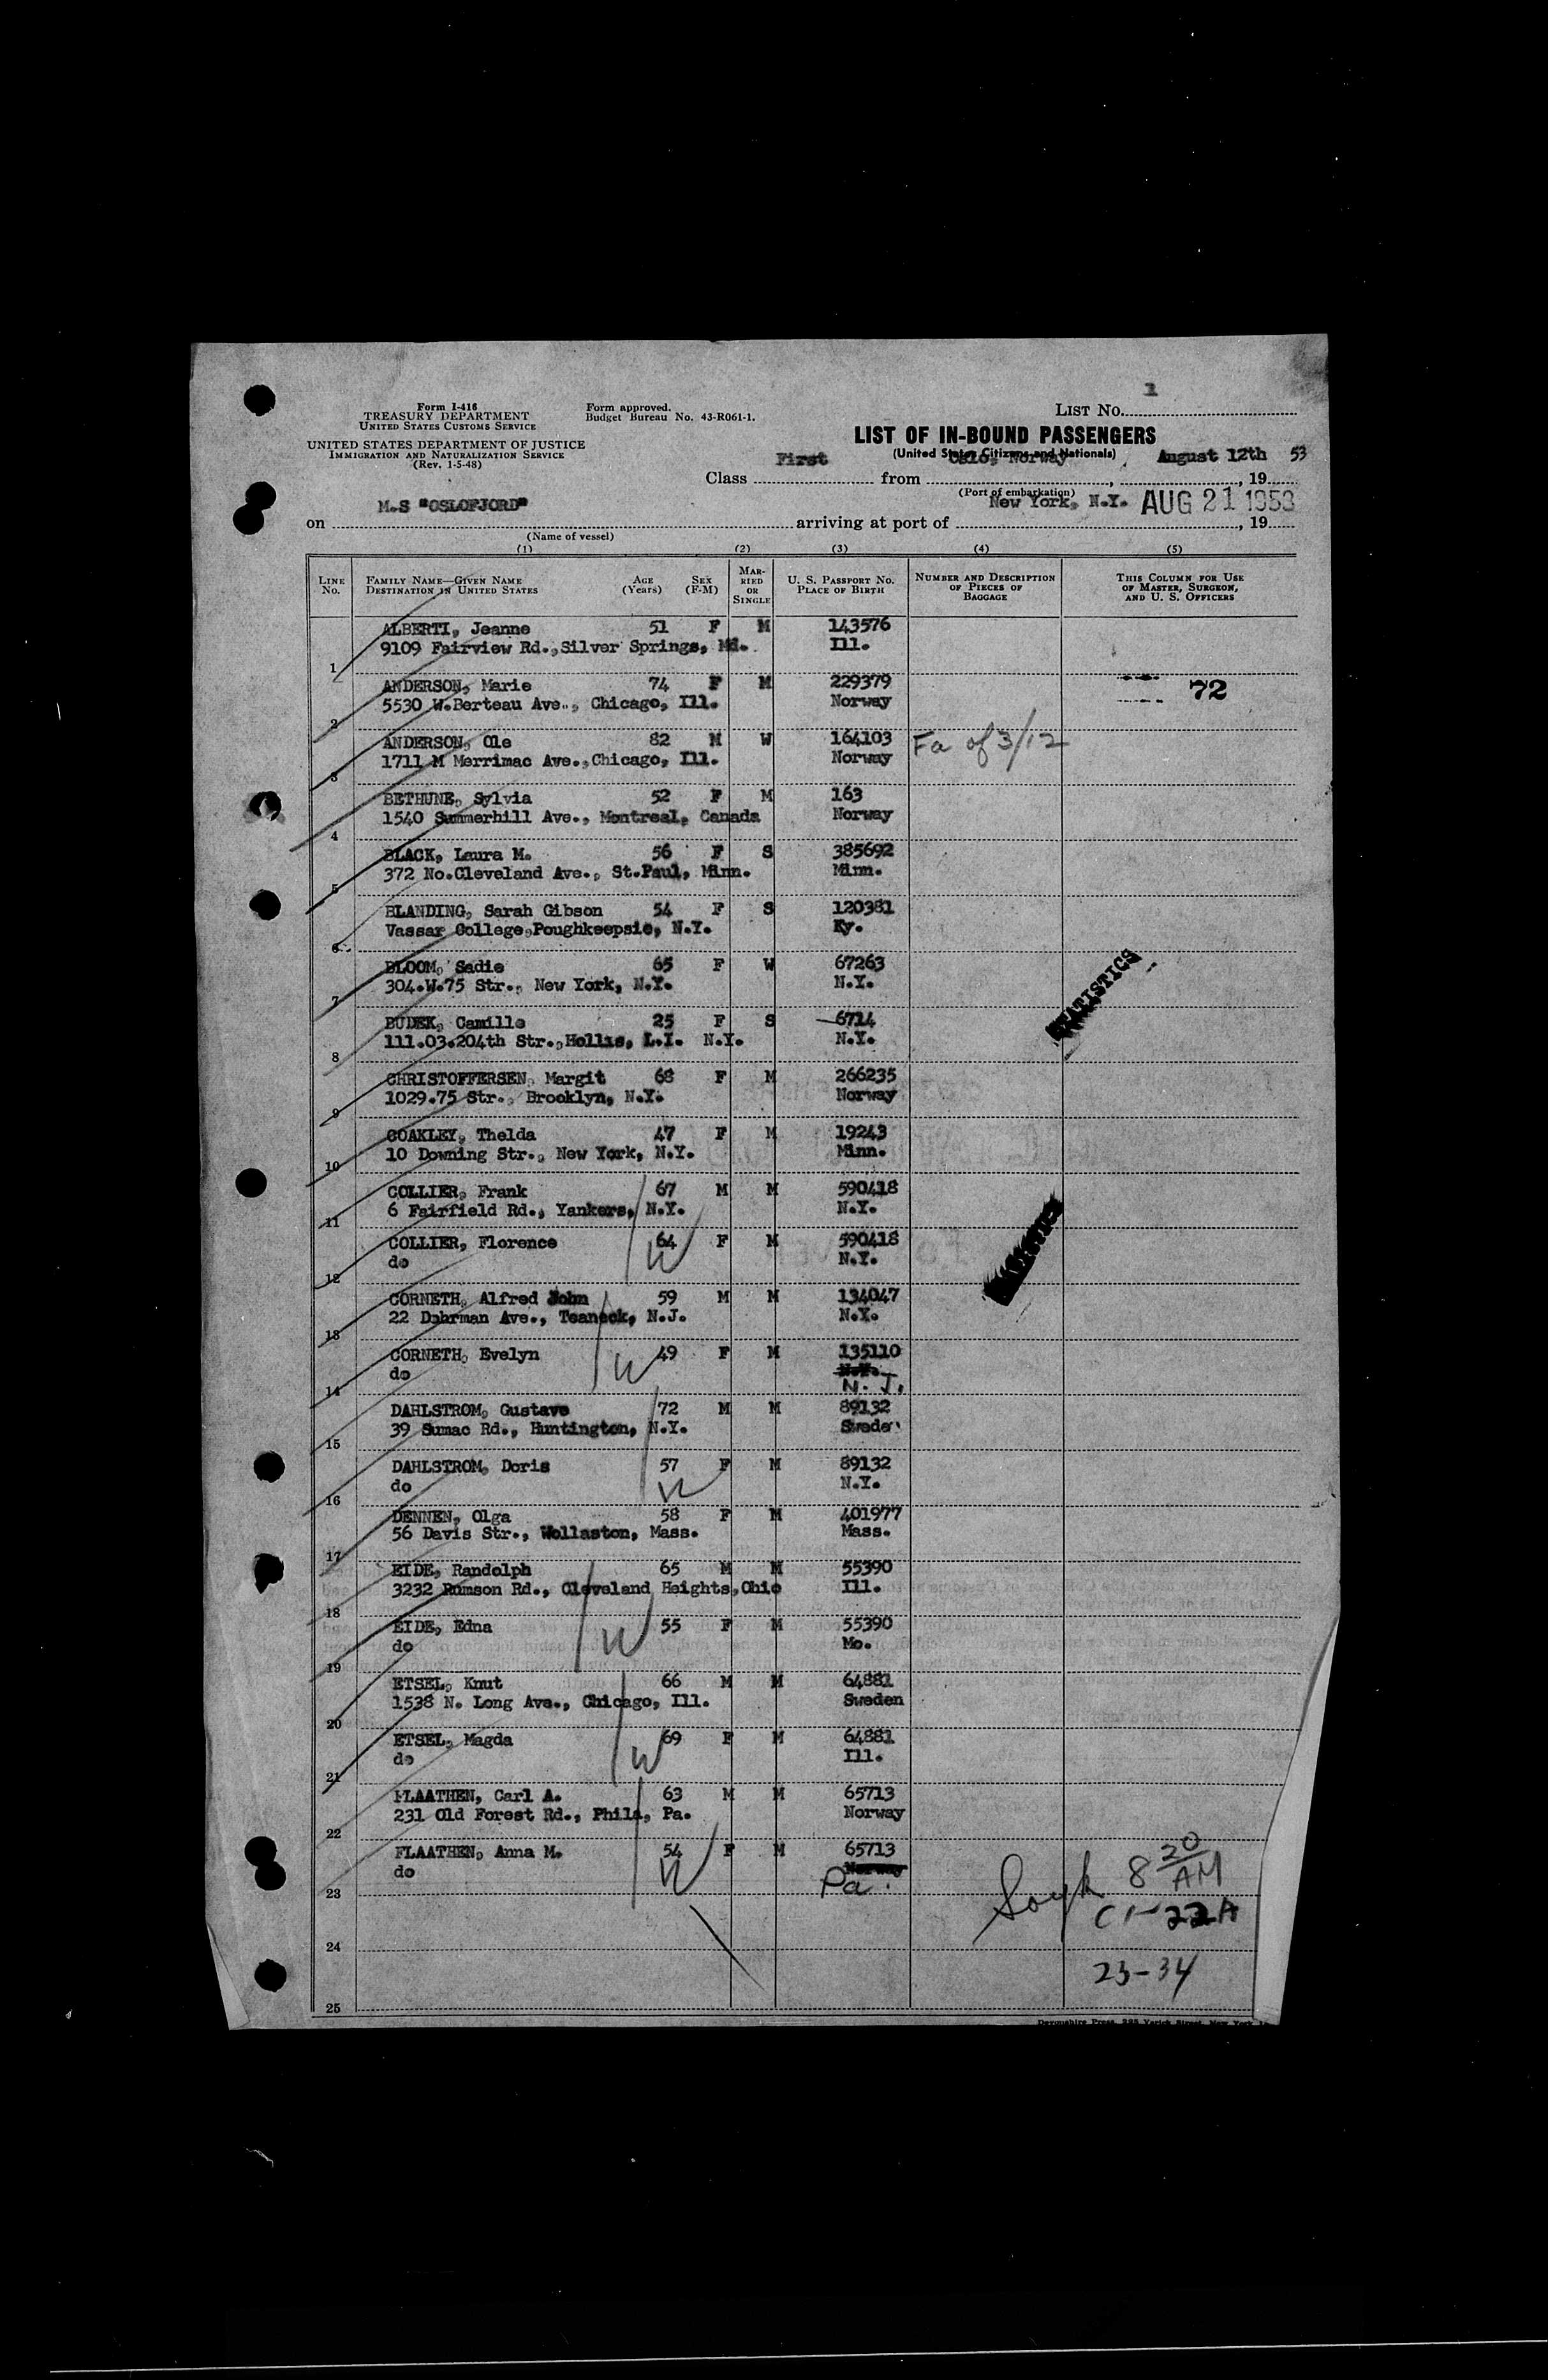 1
Form I-416
TREASURY DEPARTMENT
UNITED STATES CUSTOMS SERVICE
Form approved.
Budget Bureau No. 43-R061-1.
LIST NO.
UNITED STATES DEPARTMENT OF JUSTICE
IMMIGRATION AND NATURALIZATION SERVICE
(Rev. 1-5-48)
LIST OF IN-BOUND PASSENGERS
(United States Citizens and Nationals)
Class First from Oslo, Norway, August 12th, 19 53
(Port of embarkation)
on M.S "OSLOFJORD" arriving at port of New York, N.Y. AUG 21 1953, 19
(Name of vessel)
(1) (2) (3) (4) (5)
LINE NO. FAMILY NAME—GIVEN NAME DESTINATION IN UNITED STATES AGE (Years) SEX (F-M) MARRIED OR SINGLE U. S. PASSPORT NO. PLACE OF BIRTH NUMBER AND DESCRIPTION OF PIECES OF BAGGAGE THIS COLUMN FOR USE OF MASTER, SURGEON, AND U. S. OFFICERS
ALBERTI, Jeanne 51 F M 143576
9109 Fairview Rd.,Silver Springs, Md. Ill.
1
ANDERSON, Marie 74 F M 229379 72
5530 W.Berteau Ave., Chicago, Ill. Norway
2
ANDERSON, Ole 82 M W 164103 Fa of 3/12
1711 M Merrimac Ave.,Chicago, Ill. Norway
3
BETHUNE, Sylvia 52 F M 163
1540 Summerhill Ave., Montreal, Canada Norway
4
BLACK, Laura M. 56 F S 385692
372 No.Cleveland Ave., St.Paul, Minn. Minn.
5
BLANDING, Sarah Gibson 54 F S 120381
Vassar College,Poughkeepsie, N.Y. Ky.
6
BLOOM, Sadie 65 F W 67263
304.W.75 Str., New York, N.Y. N.Y.
7
STATISTICS
BUDEK, Camille 25 F S 6714
111.03.204th Str.,Hollis, L.I. N.Y. N.Y.
8
CHRISTOFFERSEN, Margit 68 F M 266235
1029.75 Str., Brooklyn, N.Y. Norway
9
COAKLEY, Thelda 47 F M 19243
10 Downing Str., New York, N.Y. Minn.
10
COLLIER, Frank 67 M M 590418
6 Fairfield Rd., Yankers, N.Y. N.Y.
11
COLLIER, Florence 64 F M 590418
do N.Y.
12
CORNETH, Alfred John 59 M M 134047
22 Dohrman Ave., Teaneck, N.J. N.Y.
13
CORNETH, Evelyn 49 F M 135110
do N.J.
14
DAHLSTROM, Gustave 72 M M 89132
39 Sumac Rd., Huntington, N.Y. Sweden
15
DAHLSTROM, Doris 57 F M 89132
do N.Y.
16
DENNEN, Olga 58 F M 401977
56 Davis Str., Wollaston, Mass. Mass.
17
EIDE, Randolph 65 M M 55390
3232 Rumson Rd., Cleveland Heights,Ohio Ill.
18
EIDE, Edna 55 F M 55390
do Mo.
19
ETSEL, Knut 66 M M 64881
1538 N. Long Ave., Chicago, Ill. Sweden
20
ETSEL, Magda 69 F M 64881
do Ill.
21
FLAATHEN, Carl A. 63 M M 65713
231 Old Forest Rd., Phila, Pa. Norway
22
FLAATHEN, Anna M. 54 F M 65713
do Norway
Pa.
8 20 AM
23
24
23-34
25